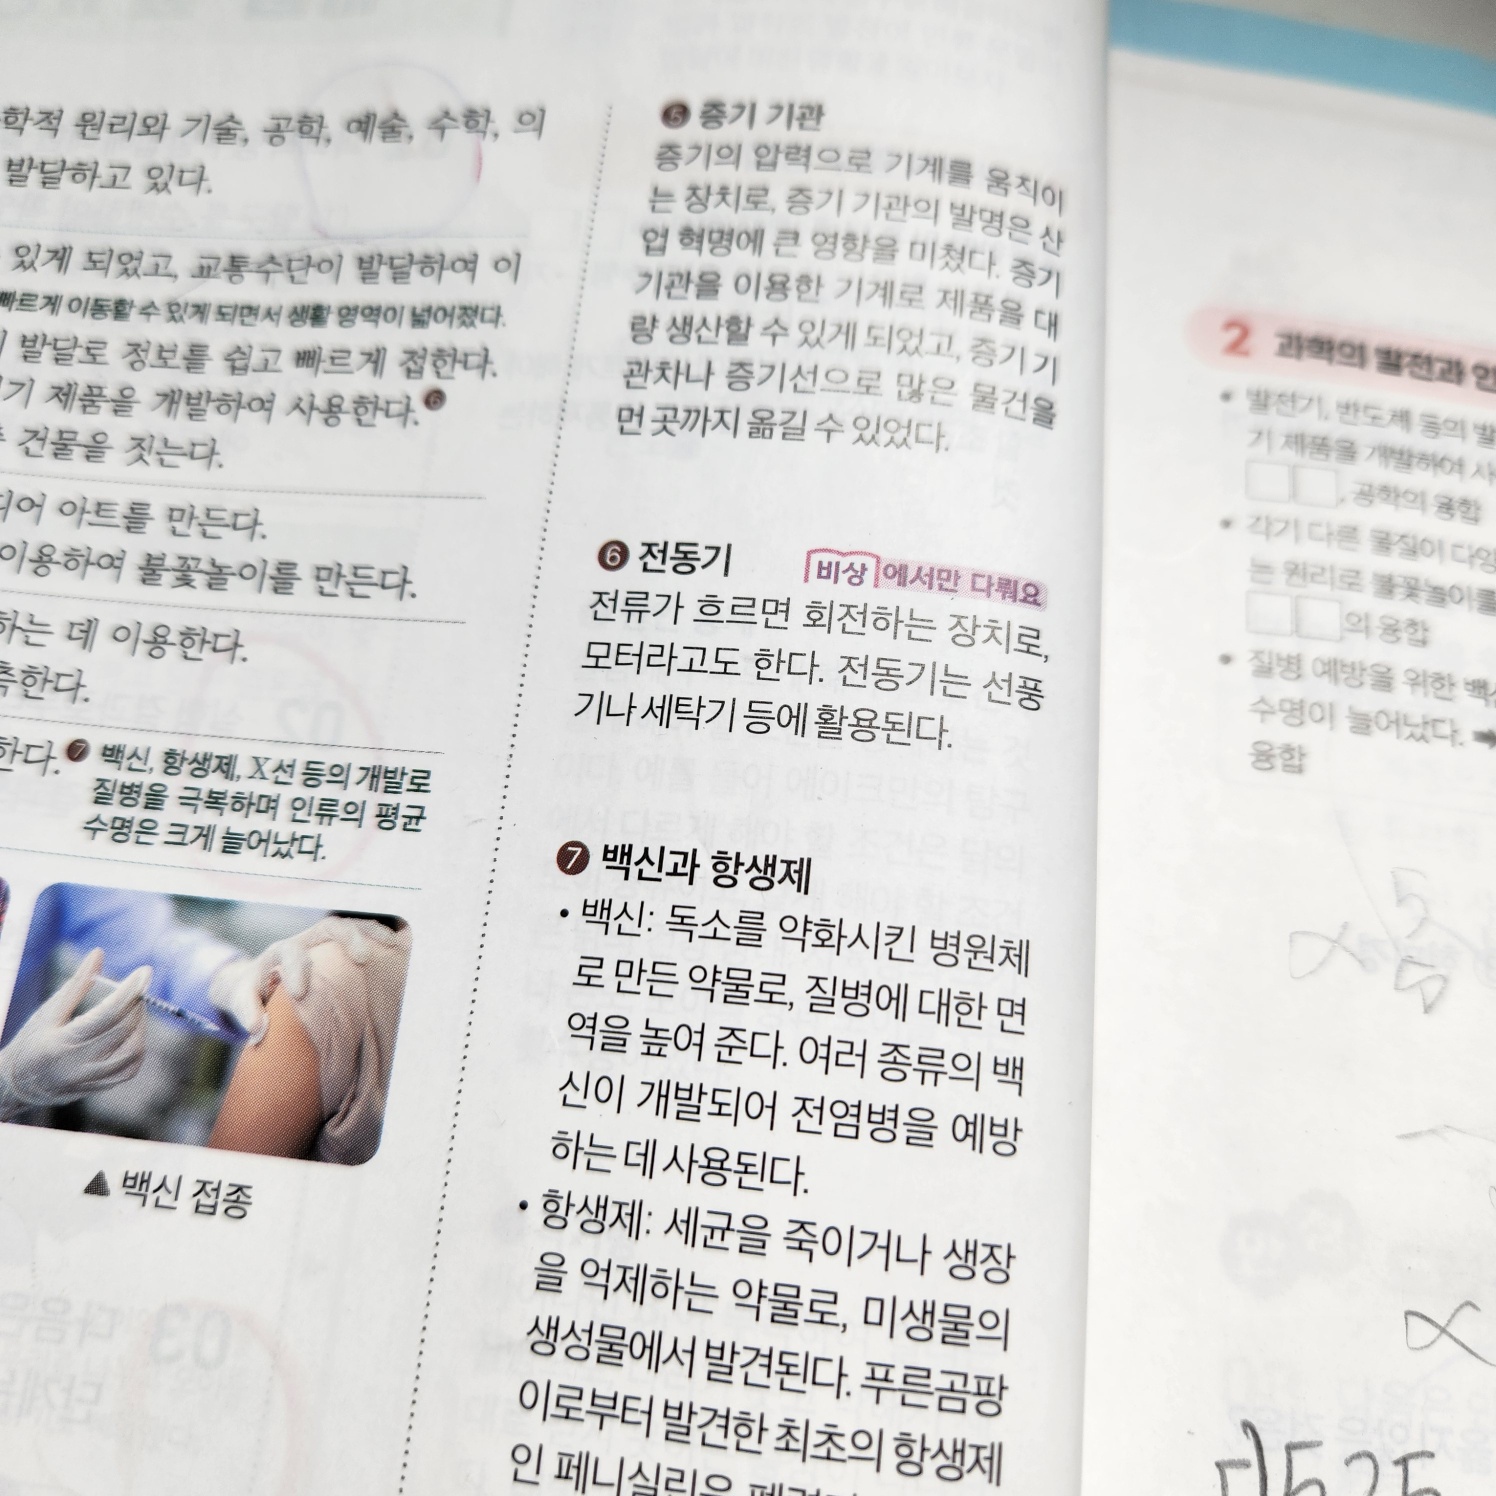 학적 원리와 기술, 공학, 예술, 수학, 의
발달하고 있다.
있게 되었고, 교통수단이 발달하여 이
빠르게 이동할 수 있게 되면서 생활 영역이 넓어졌다.
발달로 정보를 쉽고 빠르게 접한다.
기 제품을 개발하여 사용한다.❻
건물을 짓는다.
되어 아트를 만든다.
이용하여 불꽃놀이를 만든다.
하는 데 이용한다.
측한다.
한다.❼ 백신, 항생제, X선 등의 개발로
질병을 극복하며 인류의 평균
수명은 크게 늘어났다.
▲ 백신 접종
❺ 증기 기관
증기의 압력으로 기계를 움직이
는 장치로, 증기 기관의 발명은 산
업 혁명에 큰 영향을 미쳤다. 증기
기관을 이용한 기계로 제품을 대
량 생산할 수 있게 되었고, 증기 기
관차나 증기선으로 많은 물건을
먼 곳까지 옮길 수 있었다.
❻ 전동기 비상에서만 다뤄요
전류가 흐르면 회전하는 장치로,
모터라고도 한다. 전동기는 선풍
기나 세탁기 등에 활용된다.
❼ 백신과 항생제
• 백신: 독소를 약화시킨 병원체
로 만든 약물로, 질병에 대한 면
역을 높여 준다. 여러 종류의 백
신이 개발되어 전염병을 예방
하는 데 사용된다.
• 항생제: 세균을 죽이거나 생장
을 억제하는 약물로, 미생물의
생성물에서 발견된다. 푸른곰팡
이로부터 발견한 최초의 항생제
인 페니실린은
2 과학의 발전과 인
• 발전기, 반도체 등의 발
기 제품을 개발하여 사
□□, 공학의 융합
• 각기 다른 물질이 다양
는 원리로 불꽃놀이를
□□의 융합
• 질병 예방을 위한 백신
수명이 늘어났다. ➡
융합